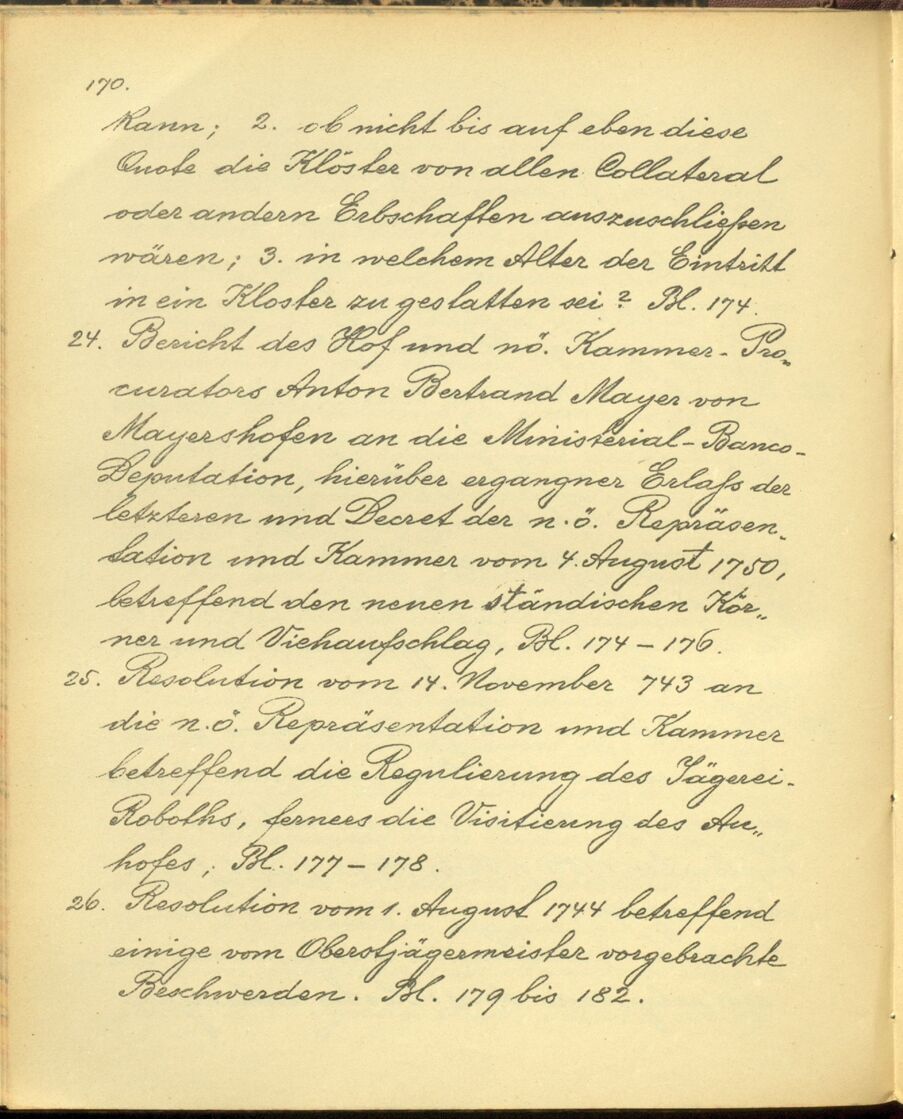 170.
kann; 2. ob nicht bis auf eben diese
Quote die Klöster von allen Collateral
oder andern Erbschaften auszuschließen
wären; 3. in welchem Alter der Eintritt
in ein Kloster zu gestatten sei? Bl. 174.
24. Bericht des Hof und nö. Kammer-Pro„
curators Anton Bertrand Mayer von
Mayershofen an die Ministerial-Banco-
Deputation, hierüber ergangner Erlaß der
letzteren und Decret der n.ö. Repräsen„
tation und Kammer vom 4. August 1750,
betreffend den neuen ständischen Kör„
ner und Viehaufschlag, Bl. 174 – 176.
25. Resolution vom 14. November 743 an
die n.ö. Repräsentation und Kammer
betreffend die Regulierung des Jägerei-
Roboths, ferners die Visitierung des Au„
hofes; Bl. 177 – 178.
26. Resolution vom 1. August 1744 betreffend
einige vom Oberstjägermeister vorgebrachte
Beschwerden. Bl. 179 bis 182.